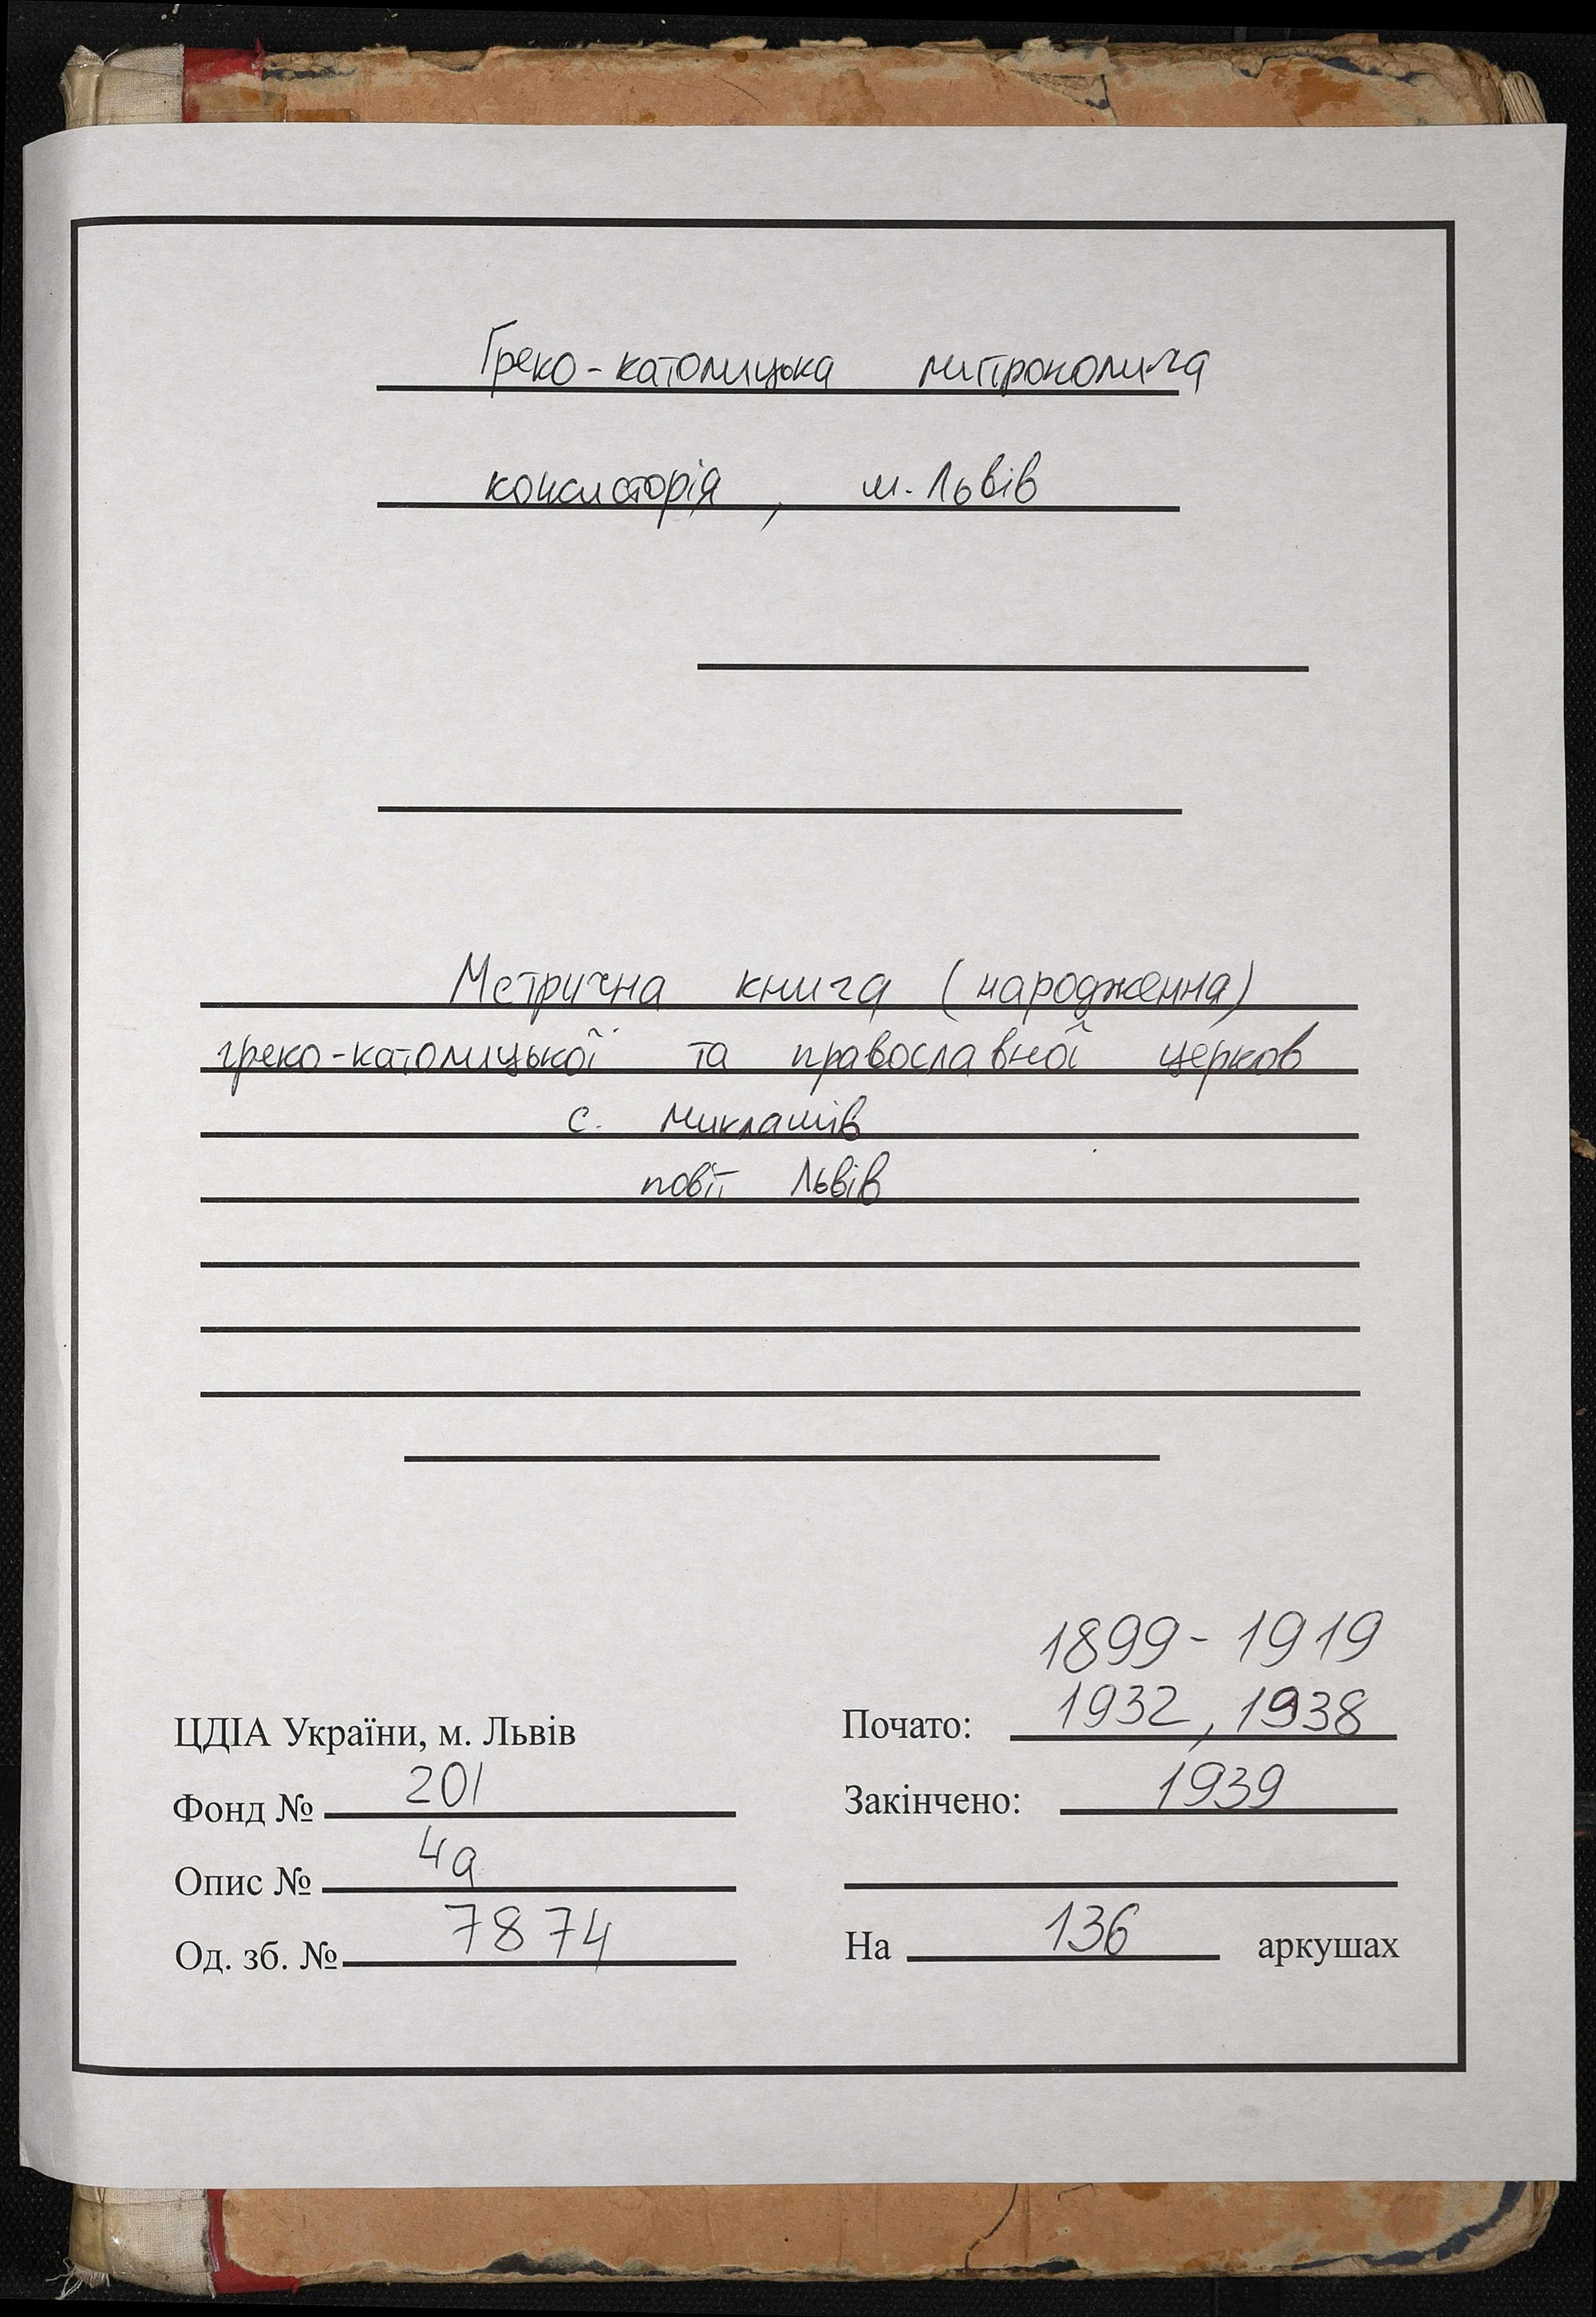 Греко-католицька митрополича
консисторія, м. Львів
Метрична книга (народження)
греко-католицької та православної церков
с. Миклашів
повіт Львів
1899-1919
ЦДІА України, м. Львів Почато: 1932, 1938
Фонд № 201 Закінчено: 1939
Опис № 4а
Од. зб. № 7874 На 136 аркушах